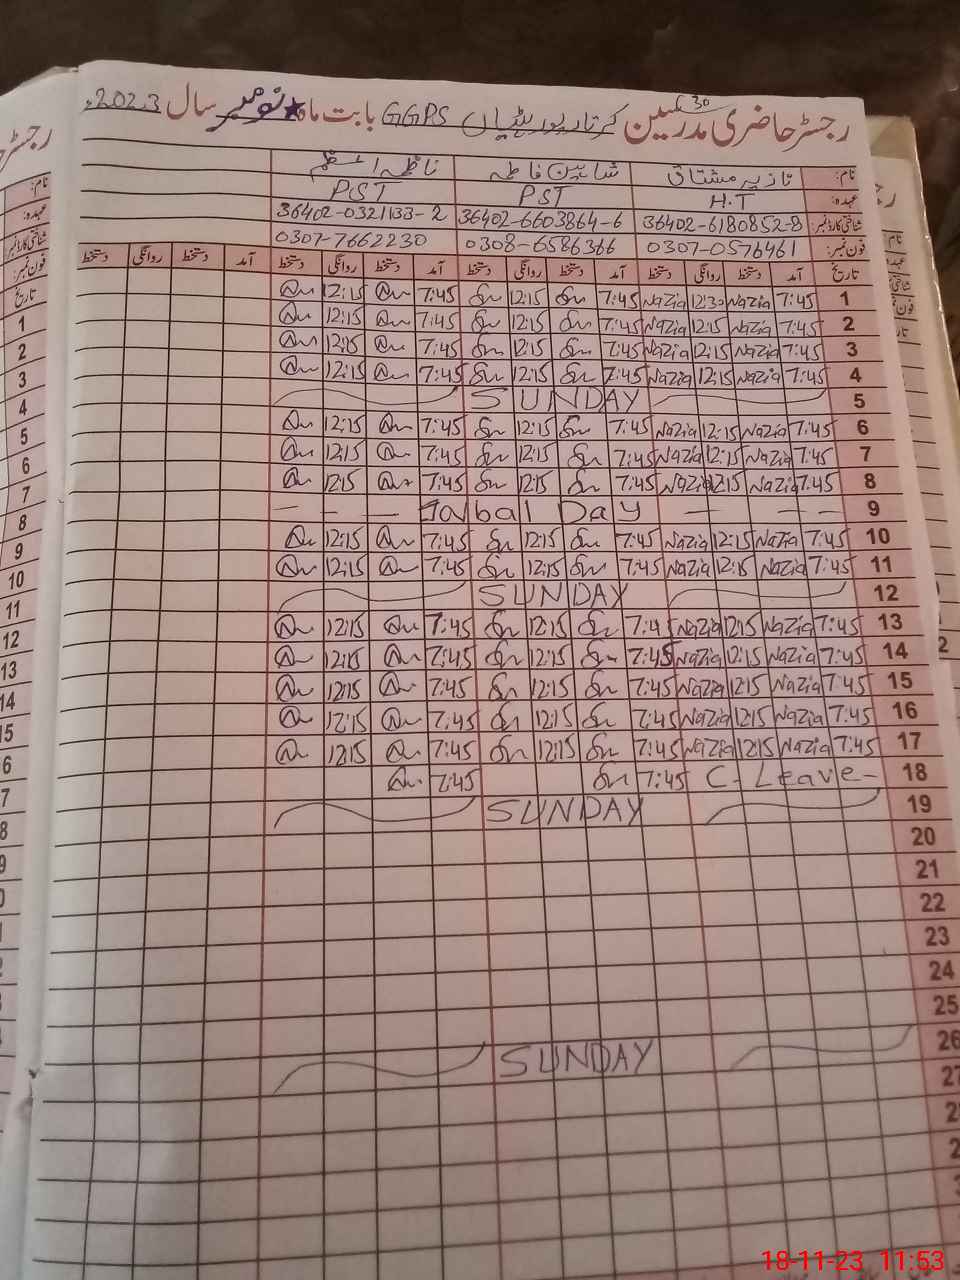 رجسٹر حاضری مدرسین GGPS کرتارپور بھٹیاں 30 بابت ماہ نومبر سال 2023ء
نام: نازیہ مشتاق شاہین فاطمہ
عہدہ: H.T PST PST
شناختی کارڈ نمبر: 36402-6180852-8 36402-6603864-6 36402-0321133-2
فون نمبر: 0307-0576961 0308-6586366 0307-7662230
تاریخ آمد دستخط روانگی دستخط آمد دستخط روانگی دستخط آمد دستخط روانگی دستخط آمد دستخط روانگی دستخط
1 7:45 Nazia 12:30 Nazia 7:45 12:15 7:45 12:15
2 7:45 Nazia 12:15 Nazia 7:45 12:15 7:45 12:15
3 7:45 Nazia 12:15 Nazia 7:45 12:15 7:45 12:15
4 7:45 Nazia 12:15 Nazia 7:45 12:15 7:45 12:15
5 SUNDAY
6 7:45 Nazia 12:15 Nazia 7:45 12:15 7:45 12:15
7 7:45 Nazia 12:15 Nazia 7:45 12:15 7:45 12:15
8 7:45 Nazia 12:15 Nazia 7:45 12:15 7:45 12:15
9 - - - Iqbal Day - - -
10 7:45 Nazia 12:15 Nazia 7:45 12:15 7:45 12:15
11 7:45 Nazia 12:15 Nazia 7:45 12:15 7:45 12:15
12 SUNDAY
13 7:45 Nazia 12:15 Nazia 7:45 12:15 7:45 12:15
14 7:45 Nazia 12:15 Nazia 7:45 12:15 7:45 12:15
15 7:45 Nazia 12:15 Nazia 7:45 12:15 7:45 12:15
16 7:45 Nazia 12:15 Nazia 7:45 12:15 7:45 12:15
17 7:45 Nazia 12:15 Nazia 7:45 12:15 7:45 12:15
18 C-Leave- 7:45 7:45
19 SUNDAY
20
21
22
23
24
25
26 SUNDAY
27
18-11-23 11:53